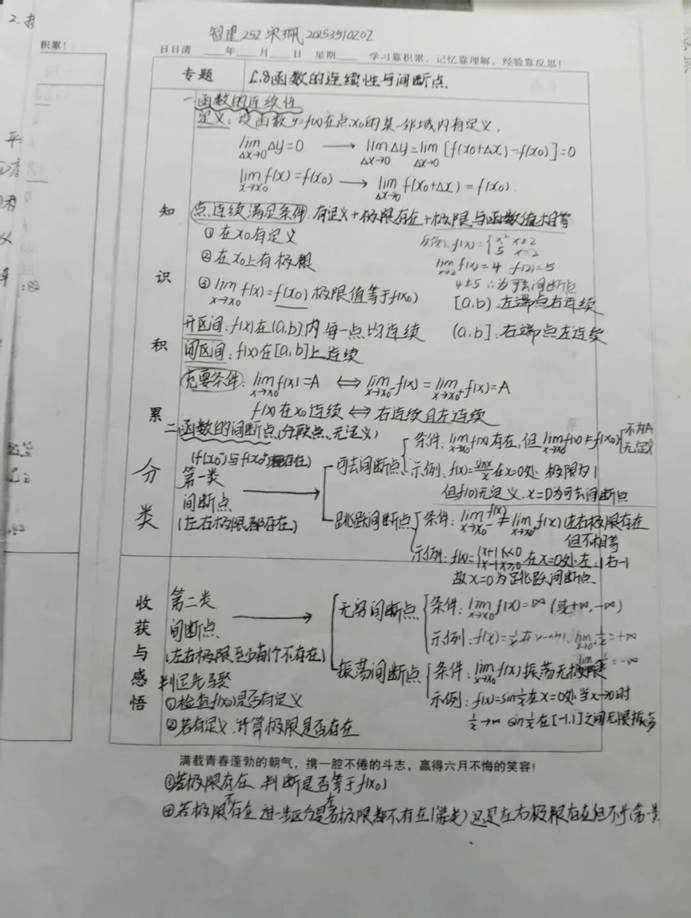 智建252 宋佩 20253510202
积累!
日日清 ___年___月___日 星期___ 学习靠积累,记忆靠理解,经验靠反思!
专题 1.8函数的连续性与间断点
一.函数的连续性
定义:设函数y=f(x)在点x0的某一邻域内有定义,
lim Δx→0 Δy=0 → lim Δx→0 Δy=lim Δx→0 [f(x0+Δx)-f(x0)]=0
lim x→x0 f(x)=f(x0) → lim Δx→0 f(x0+Δx)=f(x0).
知识积累
点连续满足条件:有定义+极限存在+极限与函数值相等
①在x0有定义
f(x)={x² x≠2 5 x=2
②在x0上有极限
lim x→2 f(x)=4 f(2)=5
4≠5 ∴为可去间断点
③lim x→x0 f(x)=f(x0) 极限值等于f(x0)
[a,b).左端点右连续
开区间:f(x)在(a,b)内每一点均连续
(a,b].右端点左连续
闭区间:f(x)在[a,b]上连续
充要条件:lim x→x0 f(x)=A ⟺ lim x→x0⁻ f(x)=lim x→x0⁺ f(x)=A
f(x)在x0连续⟺右连续且左连续
分类
二.函数的间断点(分段点、无定义)
第一类
间断点
(左右极限都存在)
可去间断点
条件:lim x→x0 f(x)存在,但lim x→x0 f(x)≠f(x0)
示例:f(x)=sinx/x在x=0处.极限为1
但f(0)无定义.x=0为可去间断点
跳跃间断点
条件:lim x→x0⁻ f(x)≠lim x→x0⁺ f(x)左右极限存在
但不相等
示例:f(x)={x+1 x<0 x-1 x≥0 在x=0处.左1右-1
故x=0为跳跃间断点.
收获与感悟
第二类
间断点
(左右极限至少有1个不存在)
无穷间断点
条件:lim x→x0 f(x)=∞(或+∞,-∞)
示例:f(x)=
振荡间断点
条件:lim x→x0 f(x)振荡无极限
示例:f(x)=sin1/x在x=0处.当x→0时
1/x→∞ sin1/x在[-1,1]之间无限振荡
判定步骤
①检查f(x0)是否有定义
②若有定义.计算极限是否存在
满载青春蓬勃的朝气,携一腔不倦的斗志,赢得六月不悔的笑容!
③若极限存在.判断是否等于f(x0)
④若极限不存在.进一步区分是左右极限都不存在(第二类)还是左右极限存在但不等(第一类